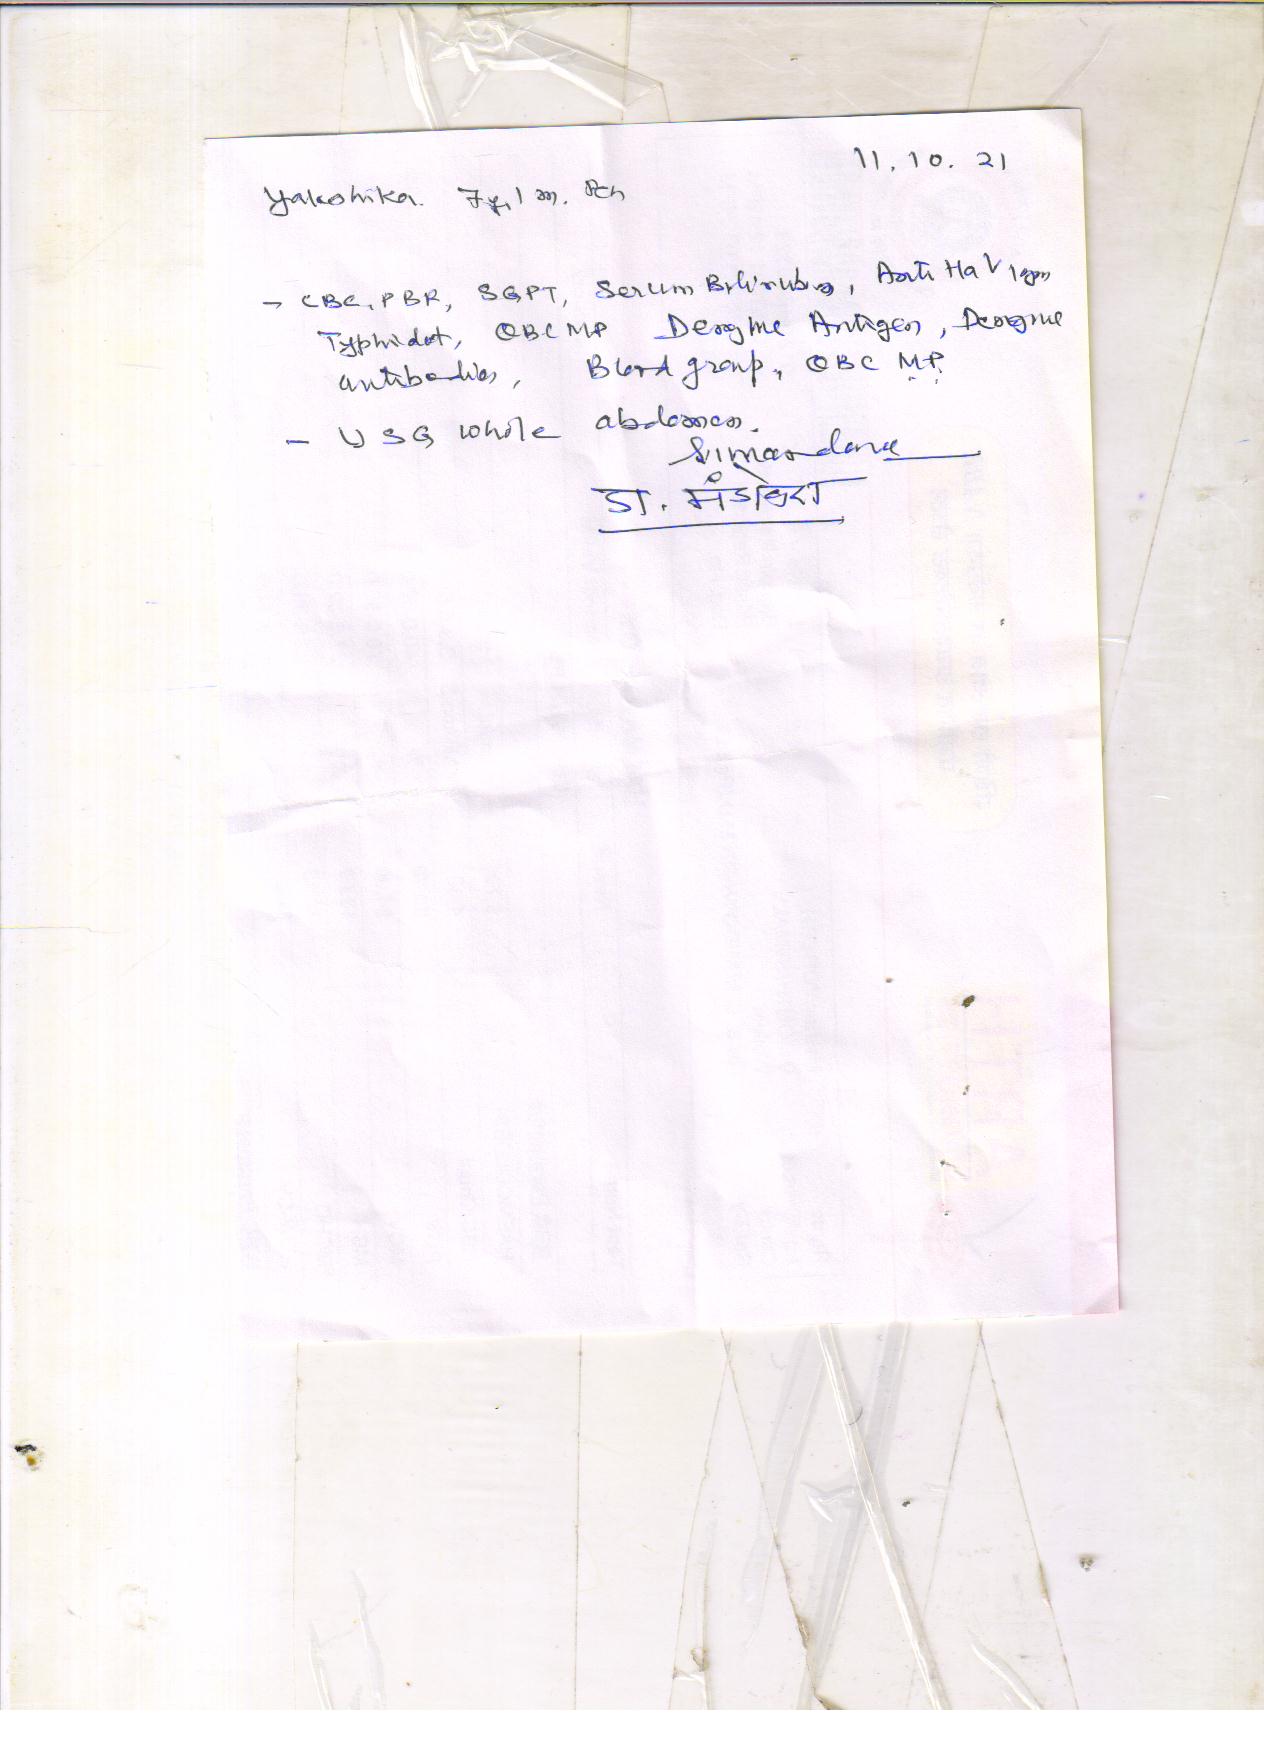 11.10.21
Yakshika. 7y, 1 m. Fch
- CBC, PBR, SGPT, Serum Bilirubin, Anti HaV Igm
Typhidot, QBC MP Dengue Antigen, Dengue
antibodies, Blood group, QBC MP.
- USG whole abdomen.
डा.